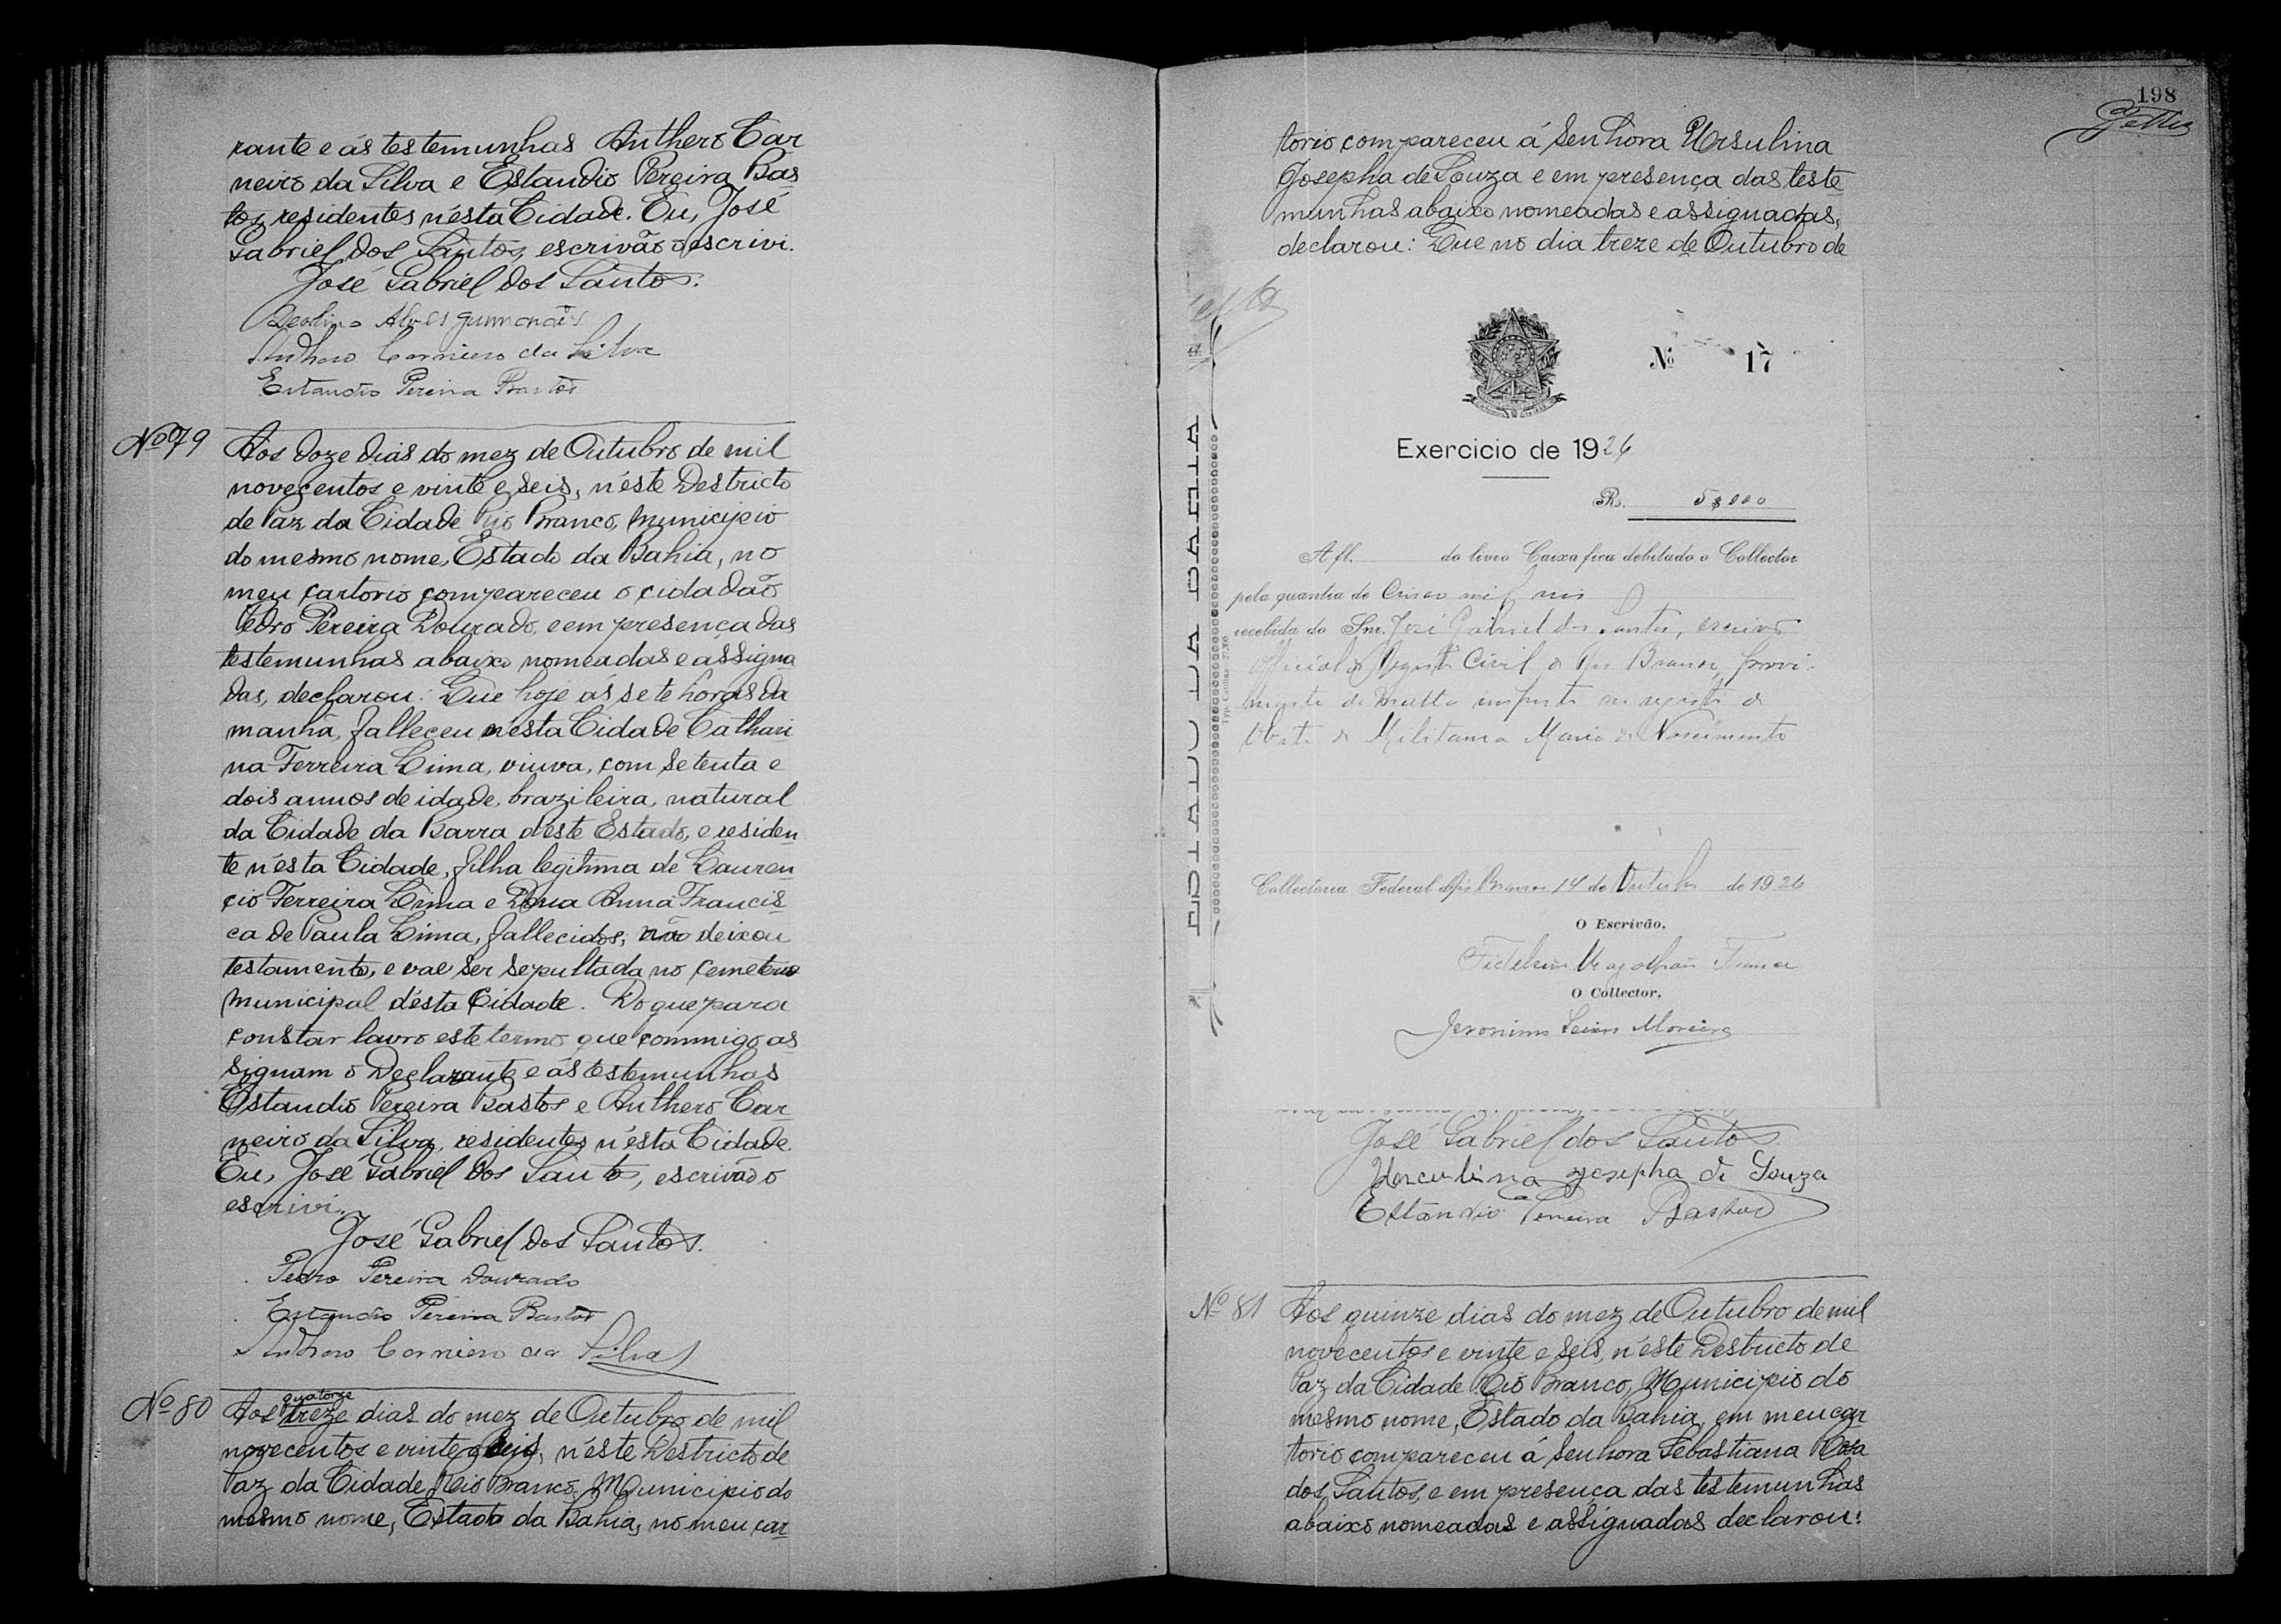 rante e ás testemunhas Anthero Car
neiro da Silva e Estandio Pereira Bas
tos, residentes n'esta Cidade. Eu, José
Gabriel dos Santos, escrivão o escrivi.
José Gabriel dos Santos.
Alves Guimarães
Anthero Carneiro da Silva
Estandio Pereira Bastos
Nº 79
Aos doze dias do mez de Outubro de mil
novecentos e vinte e seis, n'este Destricto
de Paz da Cidade Rio Branco, Municipio
do mesmo nome, Estado da Bahia, no
meu cartorio compareceu o cidadão
Pedro Pereira Dourado, e em presença das
testemunhas abaixo nomeadas e assigna
das, declarou: Que hoje ás sete horas da
manhã, falleceu nesta Cidade Cathari
na Ferreira Lima, viuva, com setenta e
dois annos de idade, brazileira, natural
da Cidade da Barra, d'este Estado, e residen
te n'esta Cidade, filha legitima de Lauren
çio Ferreira Lima e Dona Anna Francis
ca de Paula Lima, fallecidos; não deixou
testamento, e vae ser sepultada no cemeterio
Municipal d'esta Cidade. Do que para
constar lavro este termo que commigo as
signam o Declarante e ás testemunhas
Estandio Pereira Bastos e Anthero Car
neiro da Silva, residentes n'esta Cidade.
Eu, José Gabriel dos Santos, escrivão o
escrivi.
José Gabriel dos Santos.
Pedro Pereira Dourado
Estandio Pereira Bastos
Anthero Carneiro da Silva
Nº 80
quatorze
Aos treze dias do mez de Outubro de mil
novecentos e vinte e seis, n'este Destricto de
Paz da Cidade Rio Branco, Municipio do
mesmo nome, Estado da Bahia, no meu car
198
torio compareceu á Senhora Ursulina
Josepha de Souza e em presença das teste
munhas abaixo nomeadas e assignadas,
declarou: Que no dia treze de Outubro de
ESTADO DA BAHIA
Nº 17
Exercicio de 1926
Rs. 5$000
A fl. do livro Caixa fica debitado o Collector
pela quantia de Cinco mil reis
recebida do Snr. José Gabriel dos Santos, escrivão
Official do Registo Civil de Rio Branco, provi-
niente de multa imposta no registo de
Obito de Militana Maria do Nascimento
Collectoria Federal Rio Branco 14 de Outubro de 1926
O Escrivão,
O Collector,
Jeronimo Moreira
José Gabriel dos Santos.
Herculina Josepha de Souza
Estandio Pereira Bastos
Nº 81
Aos quinze dias do mez de Outubro de mil
novecentos e vinte e seis, n'este Destricto de
Paz da Cidade Rio Branco, Municipio do
mesmo nome, Estado da Bahia, em meu car
torio compareceu á Senhora Sebastiana Rosa
dos Santos, e em presença das testemunhas
abaixo nomeadas e assignadas declarou: